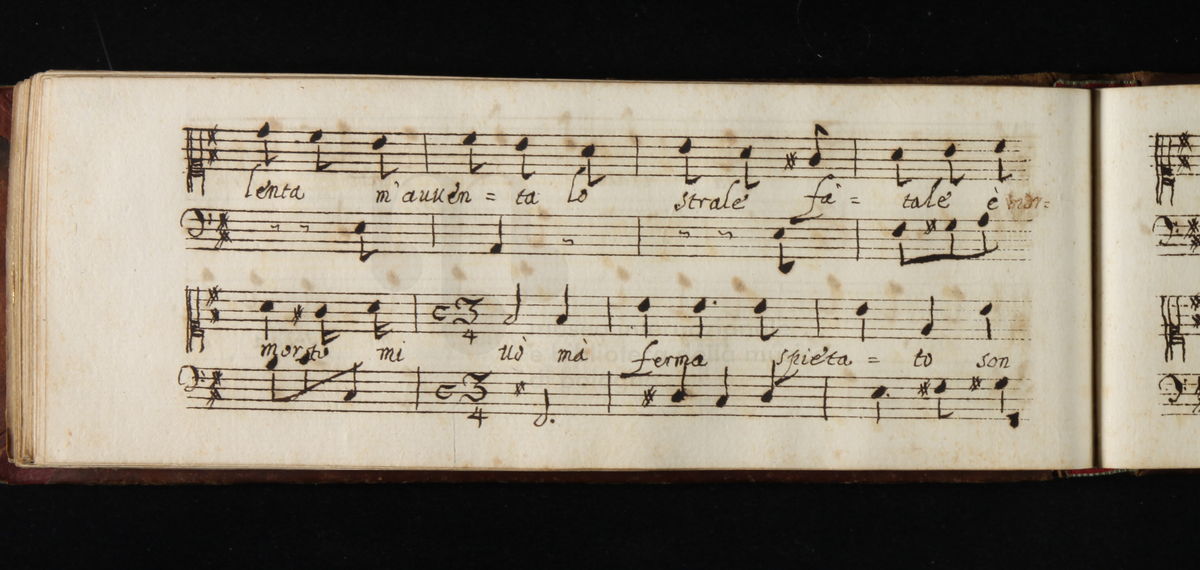 lenta m'auuen = ta lo strale fa = tale è mor=
morto mi uò mà ferma spieta = to son